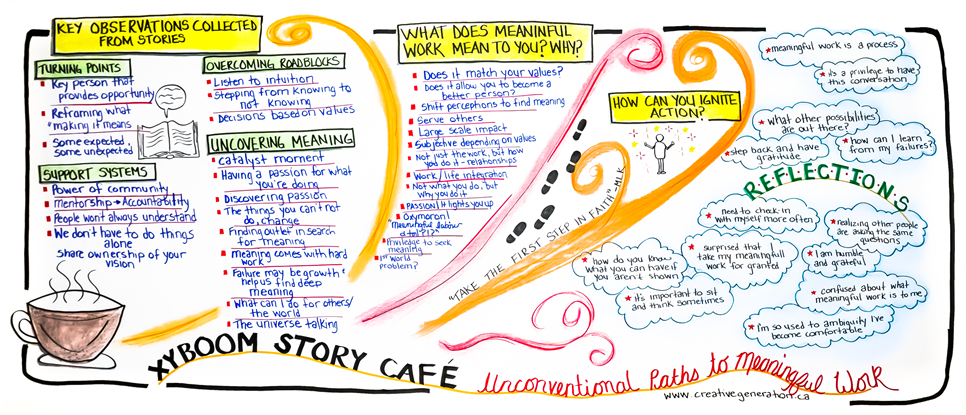 KEY OBSERVATIONS COLLECTED
FROM STORIES
TURNING POINTS
Key person that
provides opportunity
Reframing what
"making it means
Some expected,
some unexpected
SUPPORT SYSTEMS
Power of community
Mentorship → Accountability
People won't always understand
We don't have to do things
alone
share ownership of your
vision
OVERCOMING ROADBLOCKS
Listen to intuition
Stepping from knowing to
not knowing
Decisions based on values
UNCOVERING MEANING
Catalyst moment
Having a passion for what
you're doing
Discovering passion
The things you can't not
do, change
Finding outlet in search
for meaning
Meaning comes with hard
work
Failure may be growth &
helps us find deep
meaning
What can I do for others/
the world
The universe talking
WHAT DOES MEANINFUL
WORK MEAN TO YOU? WHY?
Does it match your values?
Does it allow you to become a
better person?
Shift perceptions to find meaning
Serve others
Large scale impact
Subjective depending on values
Not just the work, but how
you do it - relationships
Work/life integration
Not what you do, but
why you do it
PASSION/It lights you up
Oxymoron!
"Meaningful labour
Priviledge to seek
meaning
1st world
problem?
HOW CAN YOU IGNITE
ACTION?
"TAKE THE FIRST STEP IN FAITH" -MLK
meaningful work is a process
it's a privilege to have
this conversation
what other possibilities
are out there?
how can I learn
from my failures?
step back and have
gratitude
REFLECTIONS
need to check-in
with myself more often
realizing other people
are asking the same
questions
how do you know
what you can have if
you aren't shown
surprised that
I take my meaningful
work for granted
I am humble
and grateful
it's important to sit
and think sometimes
confused about what
meaningful work is to me
I'm so used to ambiguity I've
become comfortable
XYBOOM STORY CAFÉ
Unconventional Paths to Meaningful Work
www.creativegeneration.ca